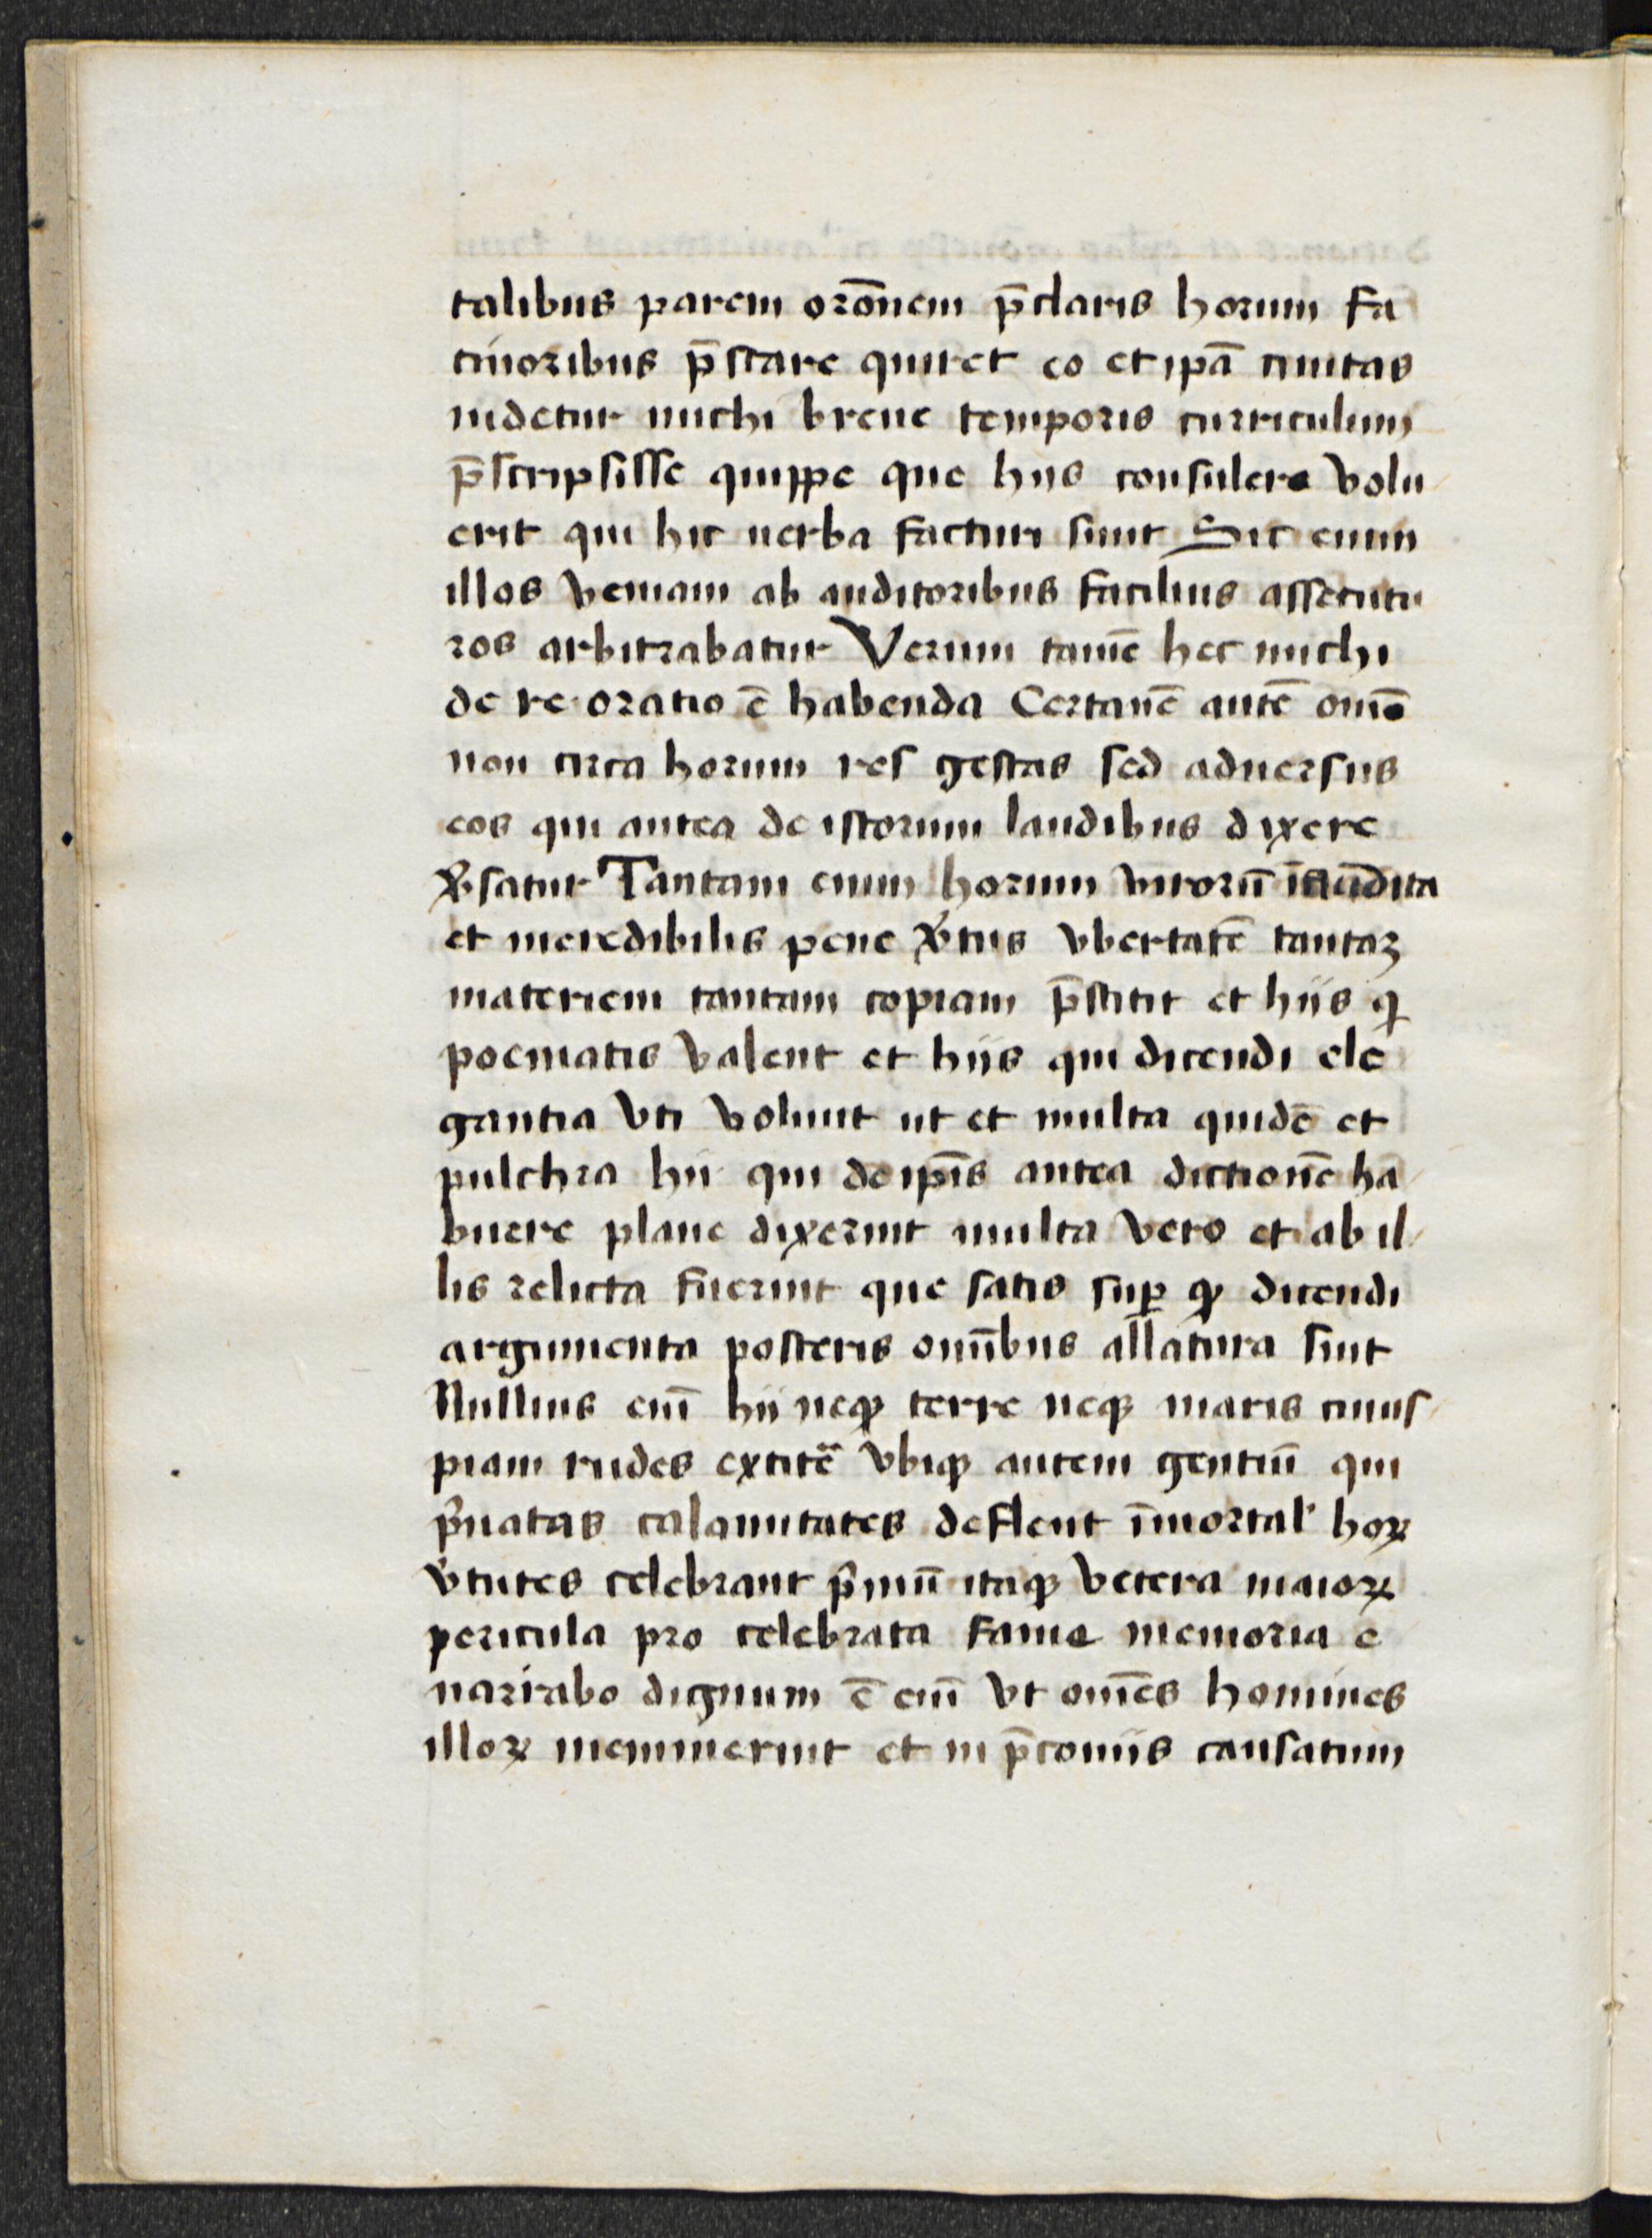 talibus parem orōnem p̄claris horum fa
cinoribus p̄stare quiret eo et ipā ciuitas
uidetur michi breue temporis curriculum
p̄scripsisse quippe que hijs consulere volu
erit qui hic uerba facturi sunt Sic enim
illos veniam ab auditoribus facilius assecutu
ros arbitrabatur Verum tamē hec michi
de re oratio ē habenda Certamē autē om̄e
non circa horum res gestas sed aduersus
eos qui antea de istorum laudibus dixere
v̓satur Tantam enim horum virorū īaudita
et incredibilis pene v̓tus vbertatē tantaꝫ
materiem tantam copiam p̄stitit et hijs q
poematis valent et hijs qui dicendi ele
gantia vti volunt ut et multa quidē et
pulchra hii qui de ip̄is antea dictionē ha
buere plane dixerint multa vero et ab il
lis relicta fuerint que satis suꝑ ꝙ dicendi
argumenta posteris om̄ibus allatura sint
Nullius em̄ hij neqꝫ terre neqꝫ maris cuius
piam rudes extitē vbiqꝫ autem gentiū qui
p̓uatas calamitates deflent īmortal' hoꝝ
v̓tutes celebrant p̓mū itaqꝫ vetera maioꝝ
pericula pro celebrata fama memoria e
narrabo dignum ē em̄ vt om̄es homines
illoꝝ meminerint et in p̄coniis cansatum